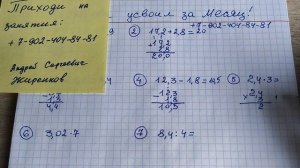 Приходи на
занятия:
+7-902-404-84-81
Андрей Сергеевич
Жиренков
усвоил за месяц!
+7-902-404-84-81
② 17,2+2,8=20
17,2
2,8
④ 12,3-1,8=10,5
-12,3
1,8
10,5
⑤ 2,4·3=
×2,4
3
2
4,4
⑥ 3,02:7
⑦ 8,4:4=